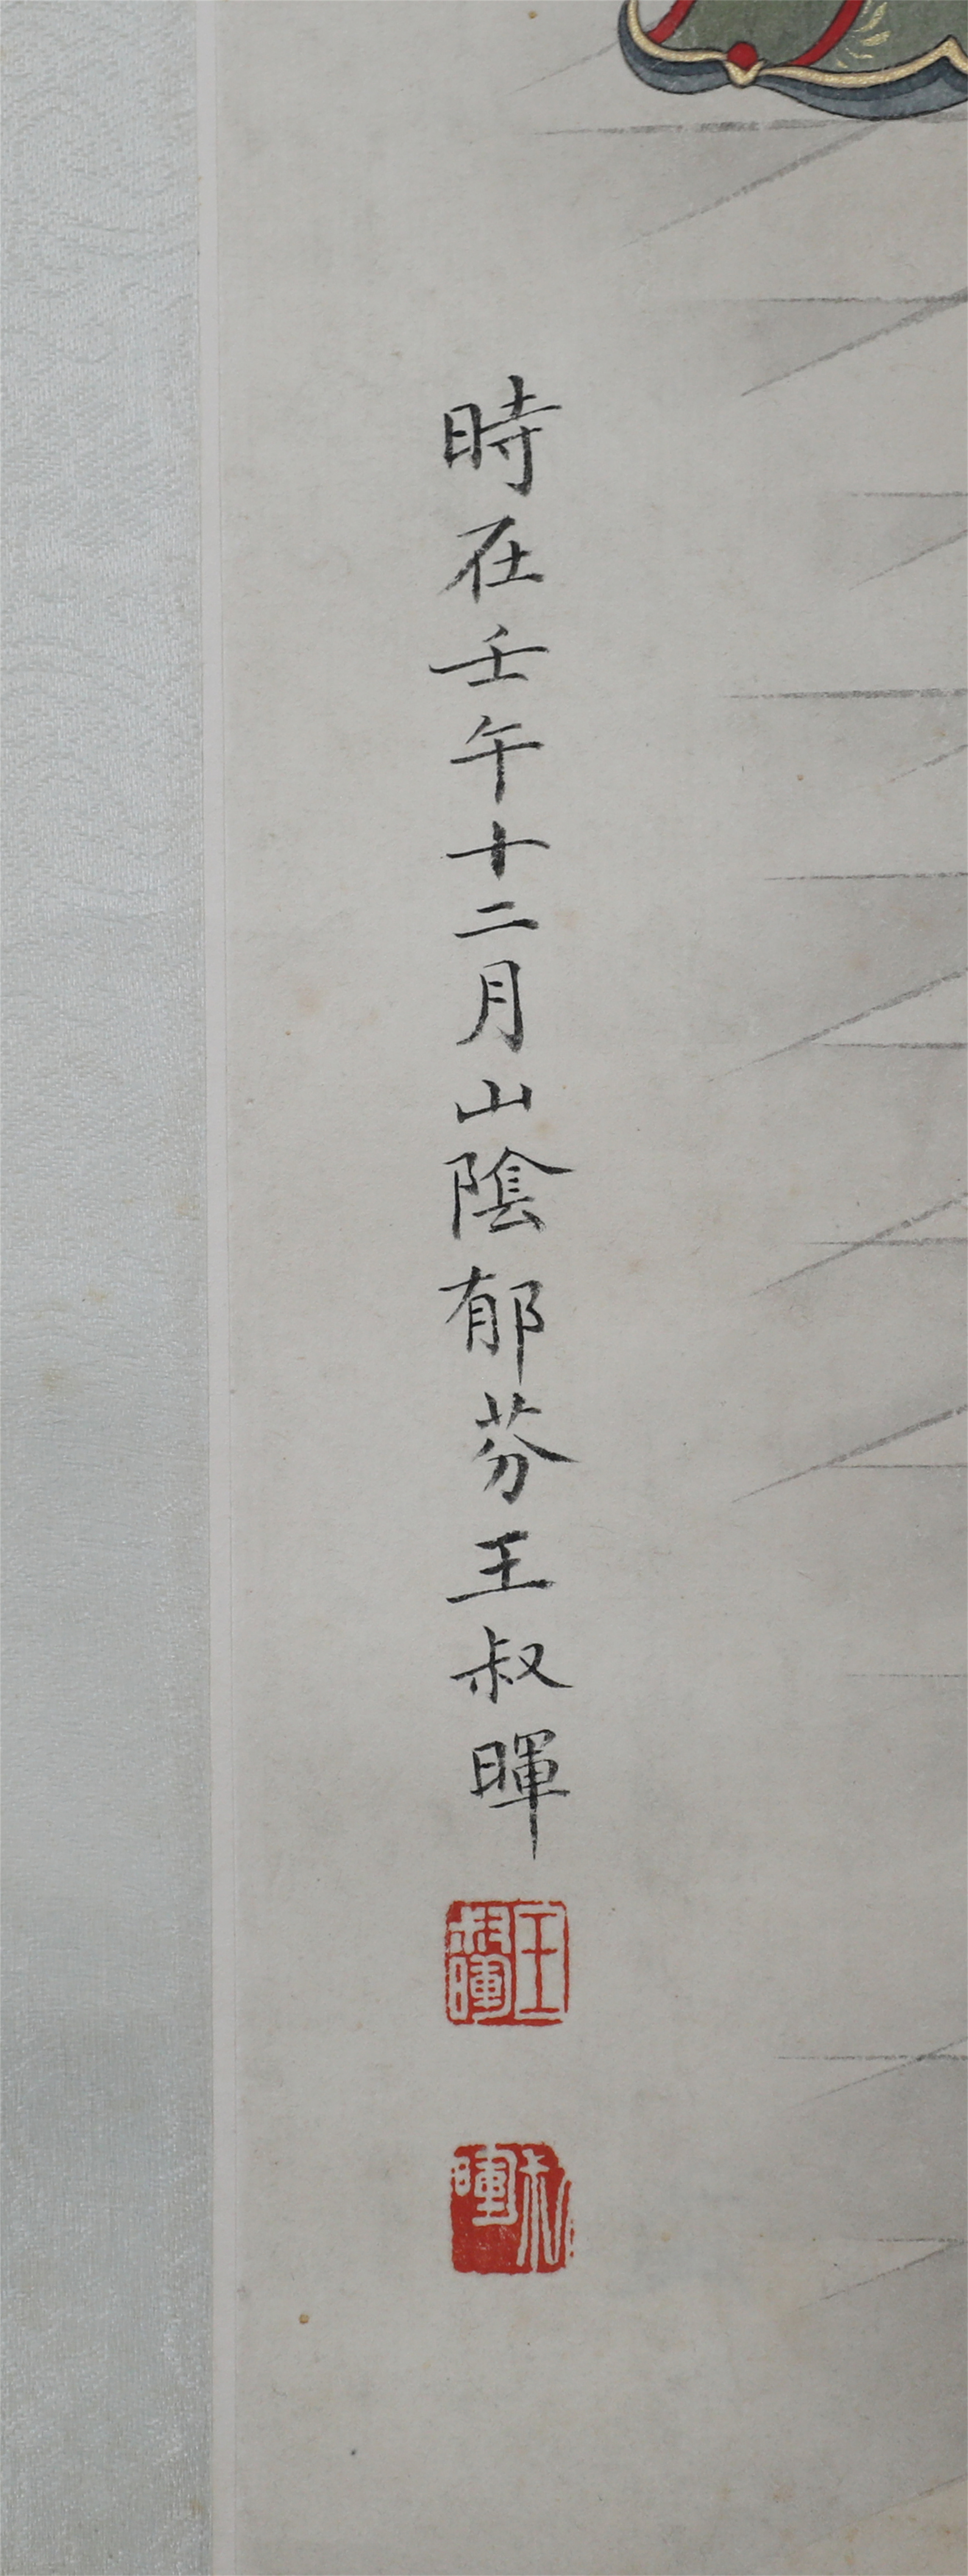 時在壬午十二月山陰郁芬王叔暉
王叔暉
叔暉